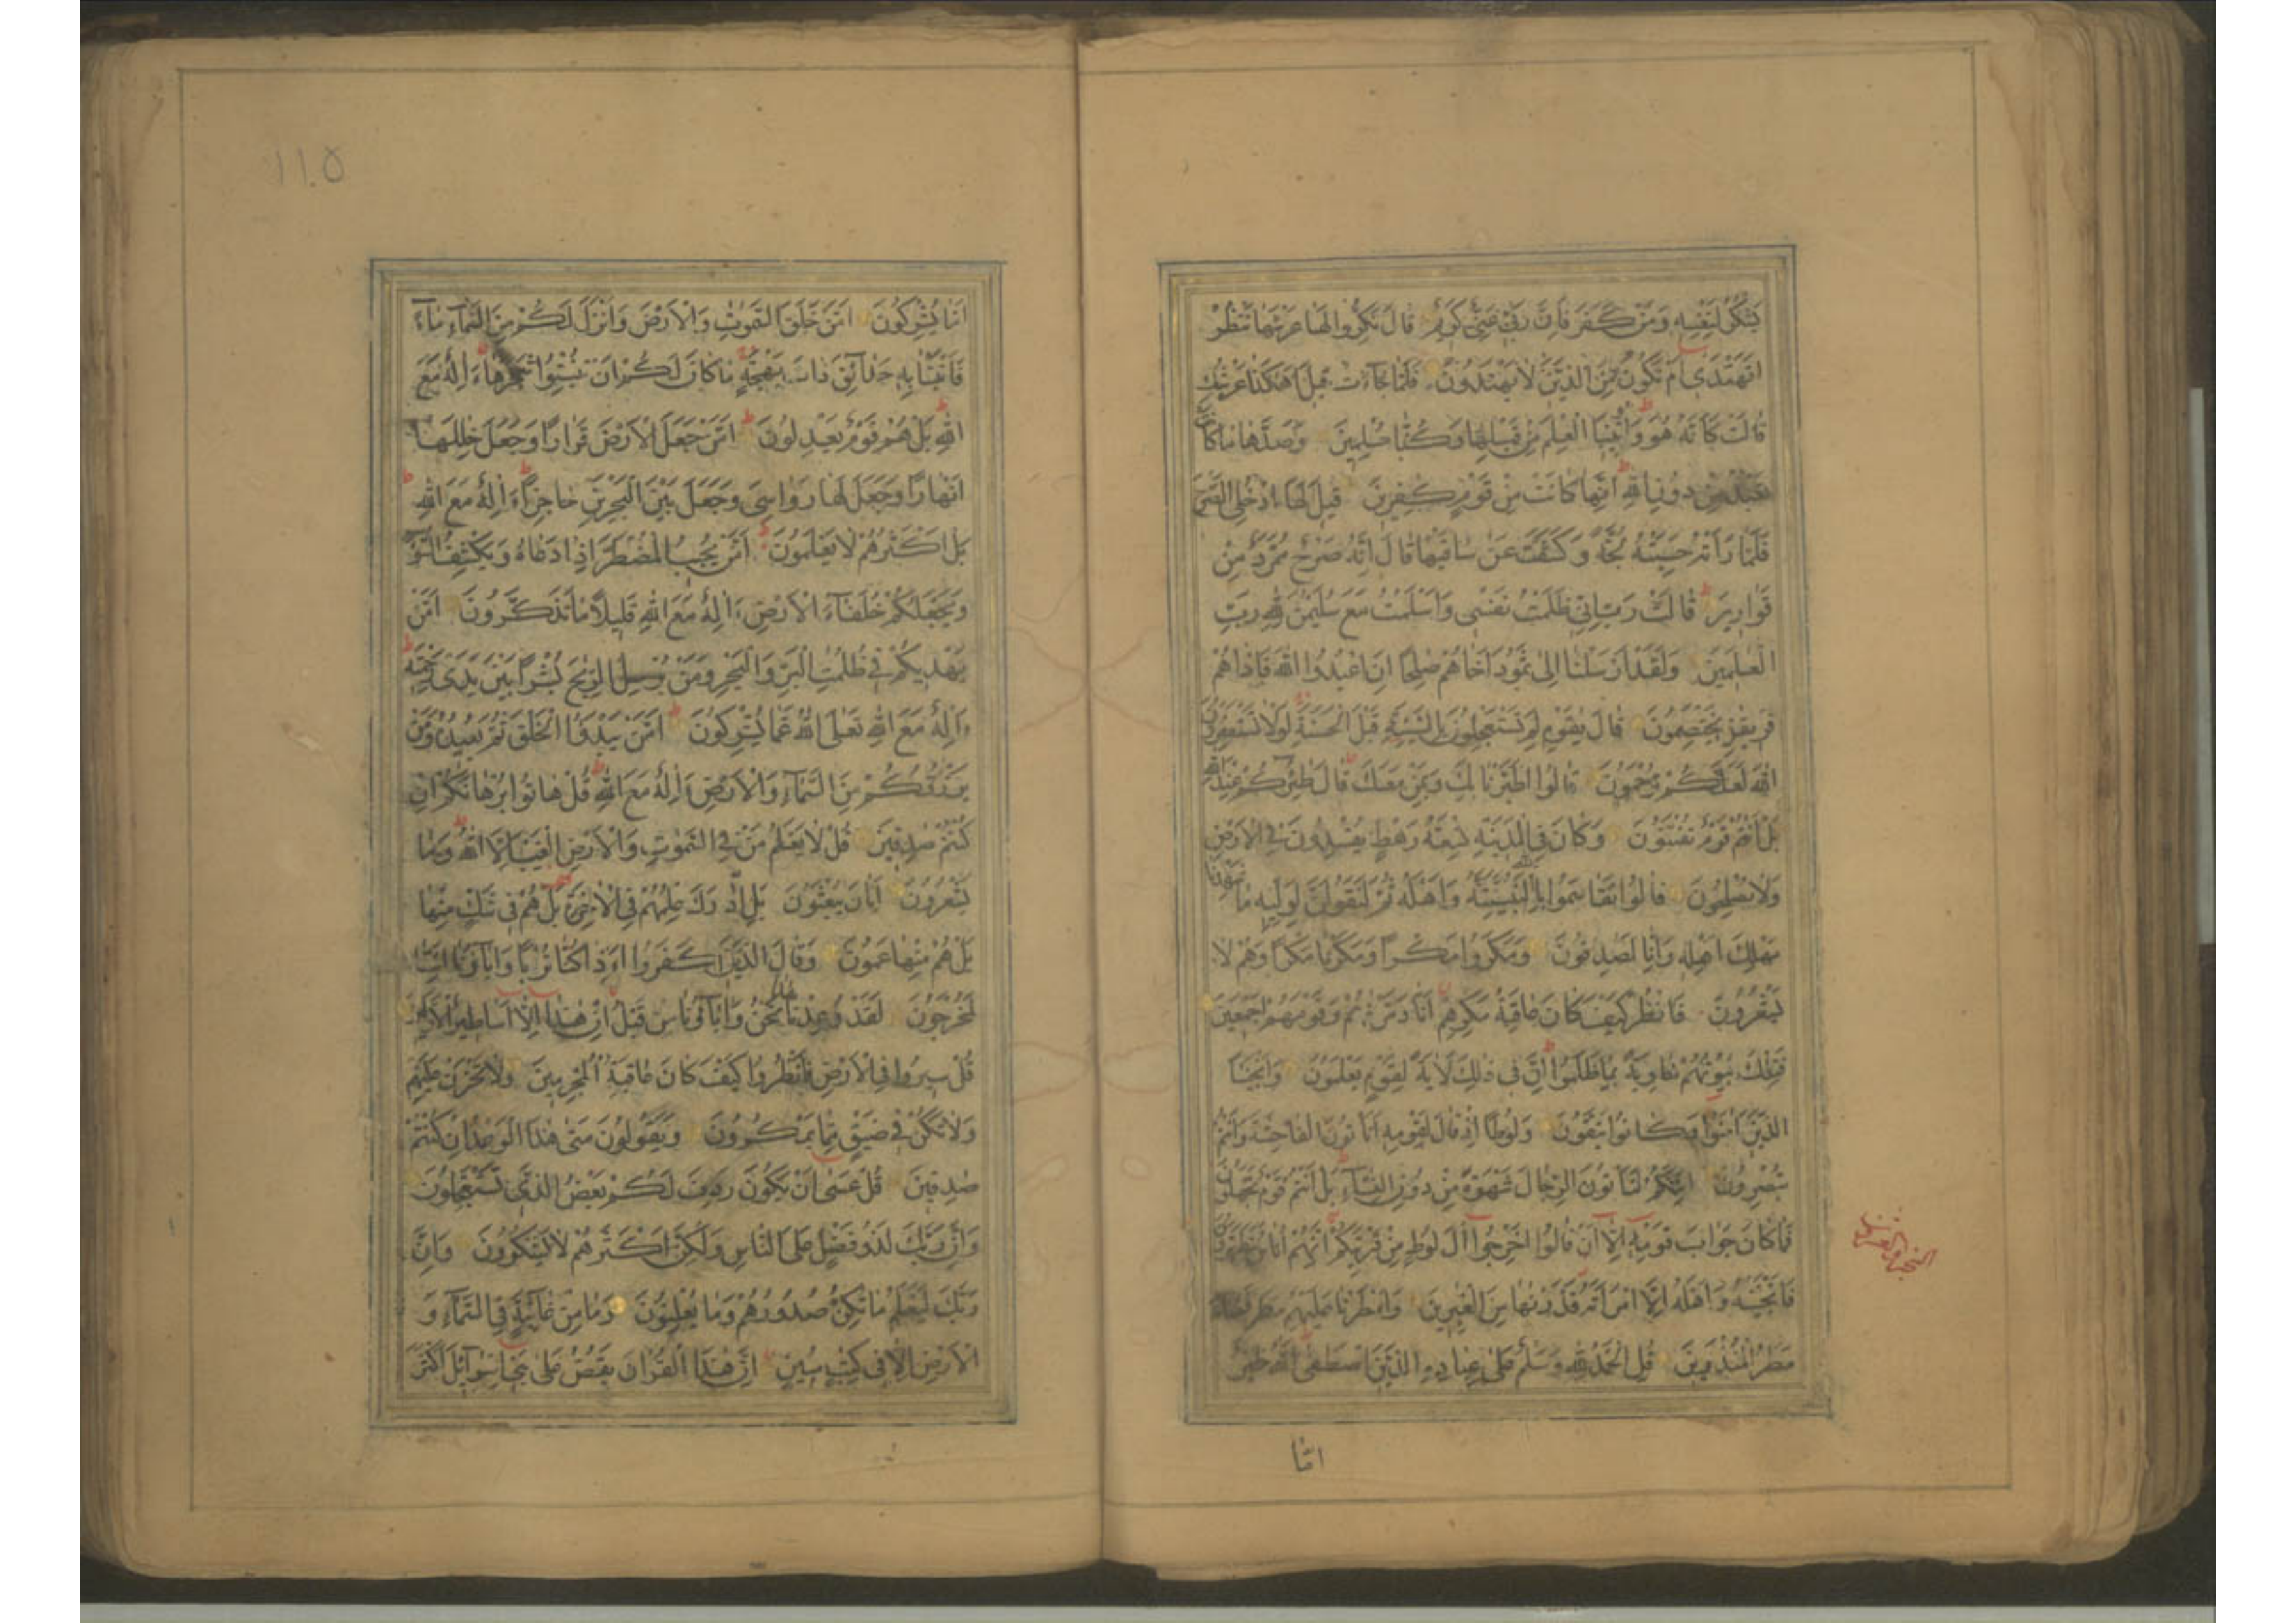 يشكر لنفسه ومن كفر فان ربى غنى كريم قال نكروا لها عرشها ننظر
اتهتدى ام تكون من الذين لا يهتدون فلما جاءت قيل اهكذا عرشك
قالت كانه هو واوتينا العلم من قبلها وكنا مسلمين وصدها ما كانت
تعبد من دون الله انها كانت من قوم كفرين قيل لها ادخلى الصرح
فلما راته حسبته لجة وكشفت عن ساقيها قال انه صرح ممرد من
قوارير قالت رب انى ظلمت نفسى واسلمت مع سليمن لله رب
العلمين ولقد ارسلنا الى ثمود اخاهم صلحا ان اعبدوا الله فاذا هم
فريقن يختصمون قال يقوم لم تستعجلون بالسيئة قبل الحسنة لولا تستغفرون
الله لعلكم ترحمون قالوا اطيرنا بك وبمن معك قال طئركم عند الله
بل انتم قوم تفتنون وكان فى المدينة تسعة رهط يفسدون فى الارض
ولا يصلحون قالوا تقاسموا بالله لنبيتنه واهله ثم لنقولن لوليه ما شهدنا
مهلك اهله وانا لصدقون ومكروا مكرا ومكرنا مكرا وهم لا
يشعرون فانظر كيف كان عاقبة مكرهم انا دمرنهم وقومهم اجمعين
فتلك بيوتهم خاوية بما ظلموا ان فى ذلك لاية لقوم يعلمون وانجينا
الذين امنوا وكانوا يتقون ولوطا اذ قال لقومه اتاتون الفاحشة وانتم
تبصرون ائنكم لتاتون الرجال شهوة من دون النساء بل انتم قوم تجهلون
فما كان جواب قومه الا ان قالوا اخرجوا ال لوط من قريتكم انهم اناس يتطهرون
فانجينه واهله الا امراته قدرنها من الغبرين وامطرنا عليهم مطرا فساء
مطر المنذرين قل الحمد لله وسلم على عباده الذين اصطفى الله خير
اما
١١٥
اما يشركون امن خلق السموت والارض وانزل لكم من السماء ماء
فانبتنا به حدائق ذات بهجة ما كان لكم ان تنبتوا شجرها ءاله مع
الله بل هم قوم يعدلون امن جعل الارض قرارا وجعل خللها
انهارا وجعل لها رواسى وجعل بين البحرين حاجزا ءاله مع الله
بل اكثرهم لا يعلمون امن يجيب المضطر اذا دعاه ويكشف السوء
ويجعلكم خلفاء الارض ءاله مع الله قليلا ما تذكرون امن
يهديكم فى ظلمت البر والبحر ومن يرسل الريح بشرا بين يدى رحمته
ءاله مع الله تعلى الله عما يشركون امن يبدؤا الخلق ثم يعيده ومن
يرزقكم من السماء والارض ءاله مع الله قل هاتوا برهانكم ان
كنتم صدقين قل لا يعلم من فى السموت والارض الغيب الا الله وما
يشعرون ايان يبعثون بل ادرك علمهم فى الاخرة بل هم فى شك منها
بل هم منها عمون وقال الذين كفروا اءذا كنا ترابا واباؤنا ائنا
لمخرجون لقد وعدنا هذا نحن واباؤنا من قبل ان هذا الا اساطير الاولين
قل سيروا فى الارض فانظروا كيف كان عاقبة المجرمين ولا تحزن عليهم
ولا تكن فى ضيق مما يمكرون ويقولون متى هذا الوعد ان كنتم
صدقين قل عسى ان يكون ردف لكم بعض الذى تستعجلون
وان ربك لذو فضل على الناس ولكن اكثرهم لا يشكرون وان
ربك ليعلم ما تكن صدورهم وما يعلنون وما من غائبة فى السماء و
الارض الا فى كتب مبين ان هذا القران يقص على بنى اسرائل اكثر